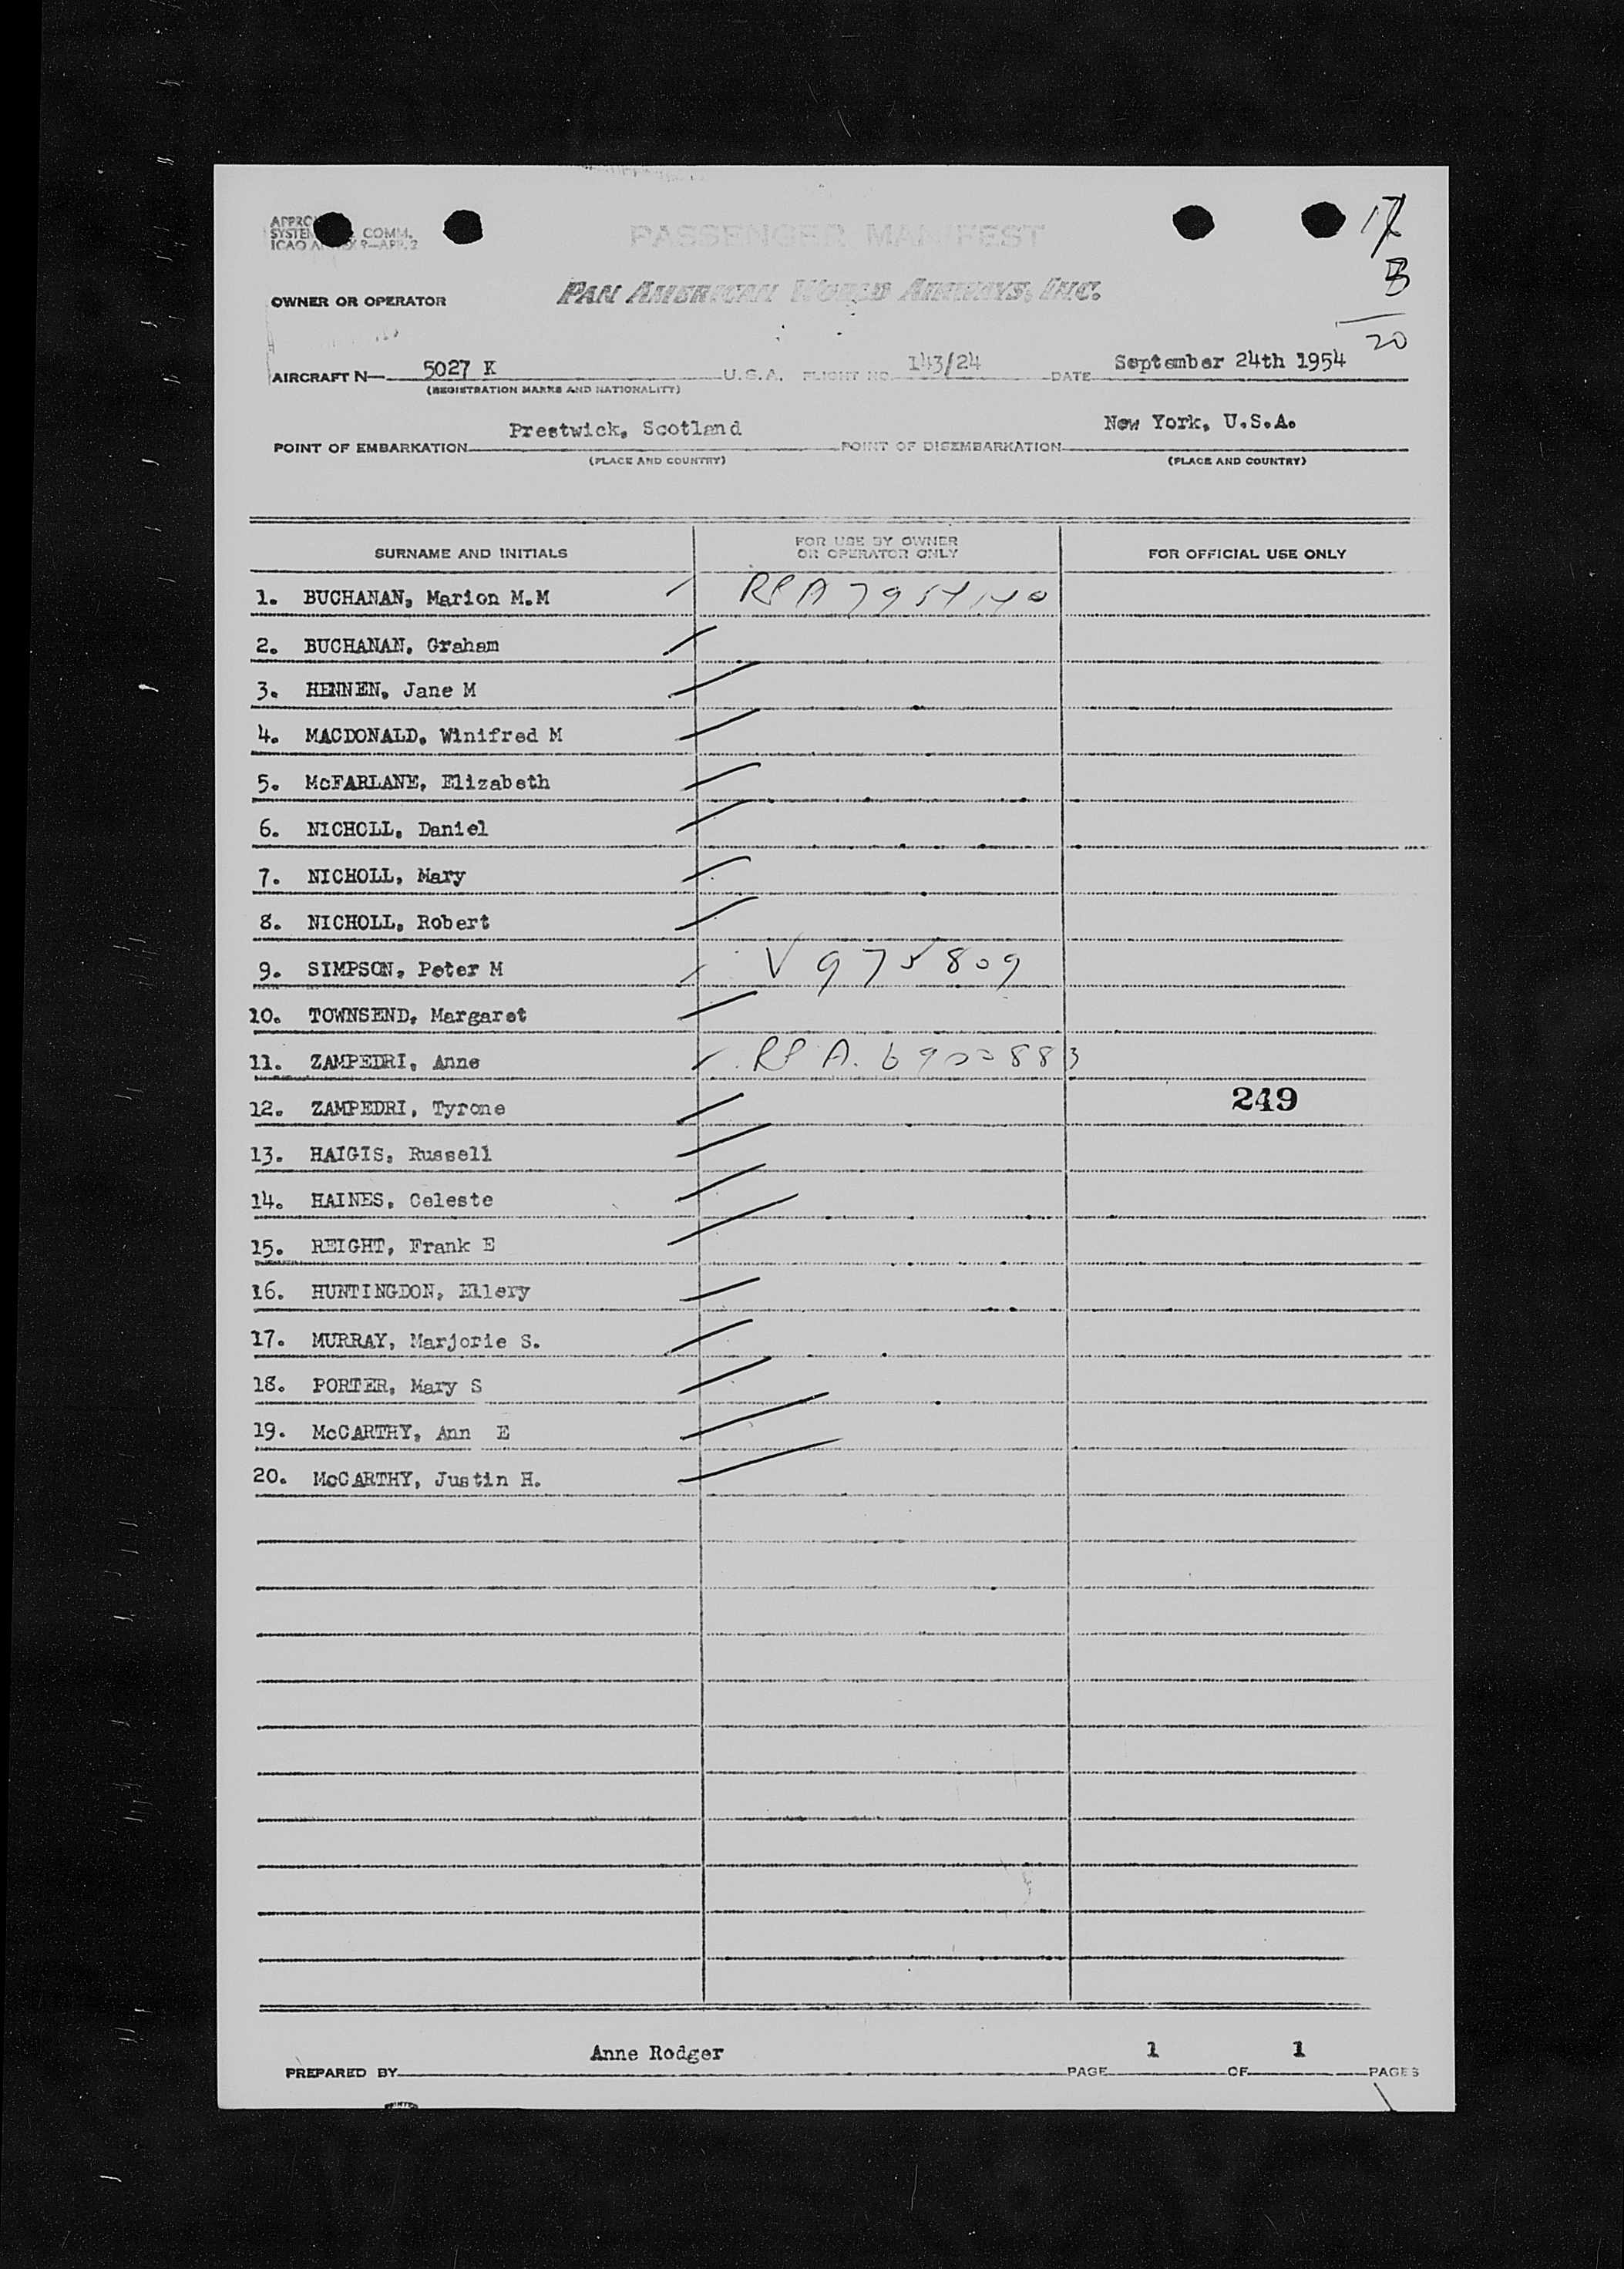 17
3
20
PASSENGER MANIFEST
SYSTEM COMM.
ICAO ANNEX 9—APP. 2
OWNER OR OPERATOR PAN AMERICAN WORLD AIRWAYS, INC.
AIRCRAFT N— 5027 K U.S.A. FLIGHT NO. 143/24 DATE September 24th 1954
(REGISTRATION MARKS AND NATIONALITY)
POINT OF EMBARKATION Prestwick, Scotland POINT OF DISEMBARKATION New York, U.S.A.
(PLACE AND COUNTRY) (PLACE AND COUNTRY)
SURNAME AND INITIALS FOR USE BY OWNER OR OPERATOR ONLY FOR OFFICIAL USE ONLY
1. BUCHANAN, Marion M.M
2. BUCHANAN, Graham
3. HENNEN, Jane M
4. MACDONALD, Winifred M
5. McFARLANE, Elizabeth
6. NICHOLL, Daniel
7. NICHOLL, Mary
8. NICHOLL, Robert
9. SIMPSON, Peter M V 975809
10. TOWNSEND, Margaret
11. ZAMPEDRI, Anne RP A. 6900883
12. ZAMPEDRI, Tyrone 249
13. HAIGIS, Russell
14. HAINES, Celeste
15. REIGHT, Frank E
16. HUNTINGDON, Ellery
17. MURRAY, Marjorie S.
18. PORTER, Mary S
19. McCARTHY, Ann E
20. McCARTHY, Justin H.
PREPARED BY Anne Rodger PAGE 1 OF 1 PAGES